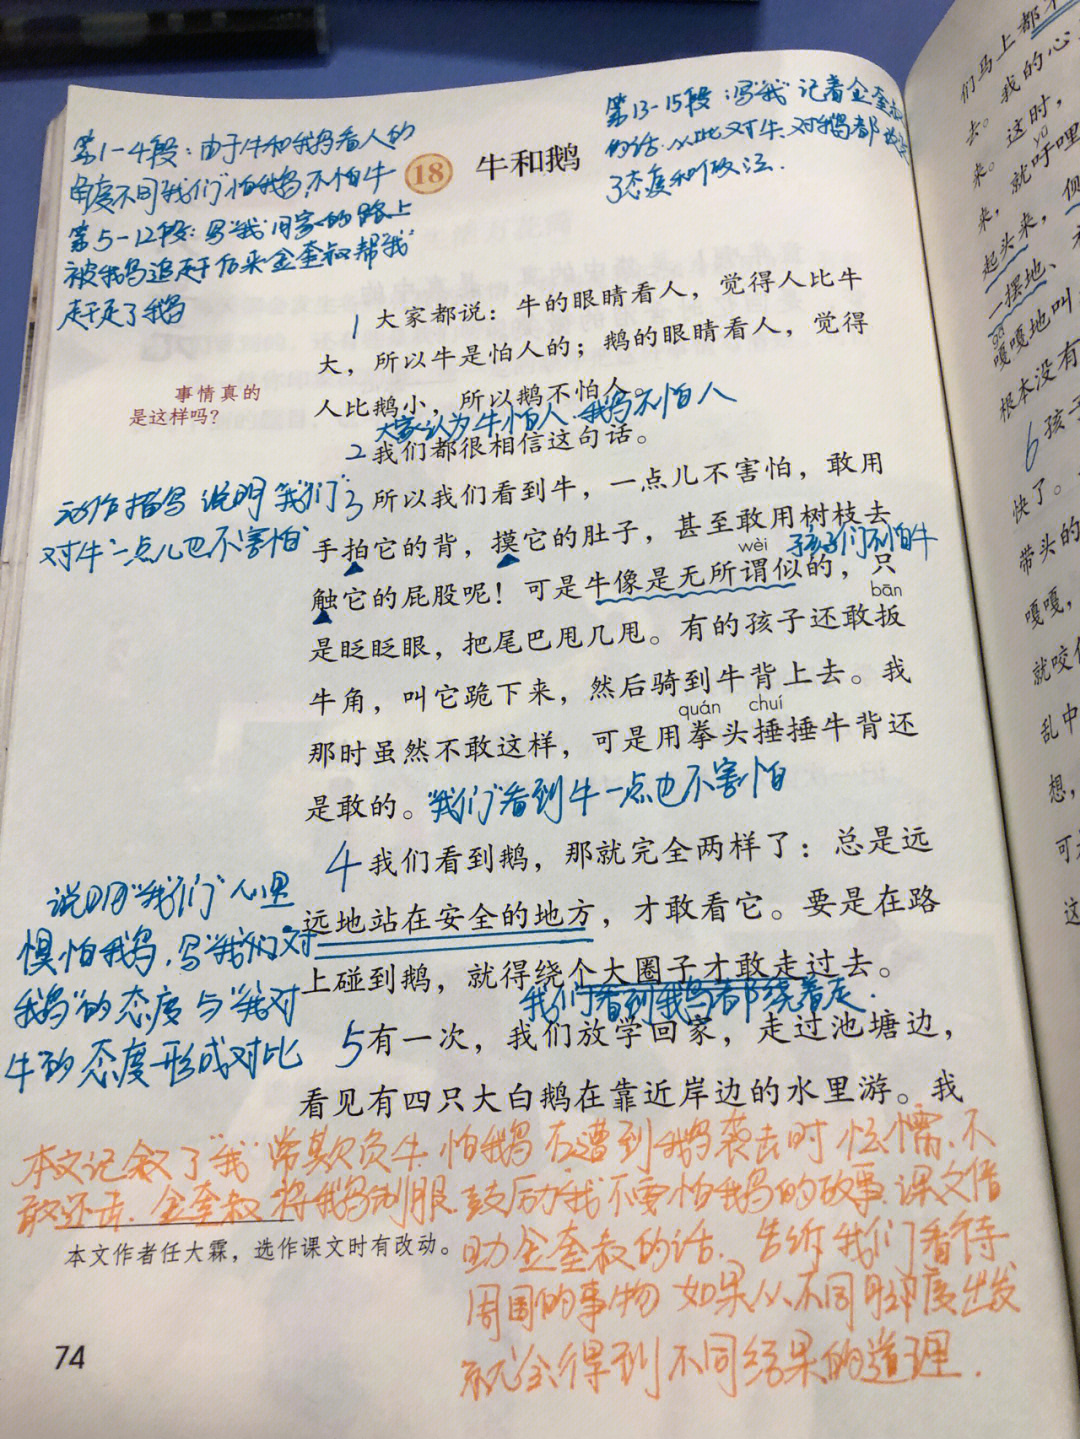 第1-4段：由于牛和鹅看人的
角度不同"我们"怕鹅，不怕牛
第5-12段：写"我"回家的路上
被鹅追赶后来金奎叔帮"我"
赶走了鹅
第13-15段：写"我"记着金奎叔
的话.从此对牛.对鹅都
了态度和做法.
18 牛和鹅
1大家都说：牛的眼睛看人，觉得人比牛
大，所以牛是怕人的；鹅的眼睛看人，觉得
人比鹅小，所以鹅不怕人。
事情真的
是这样吗？
大家认为牛怕人.鹅不怕人
2我们都很相信这句话。
3所以我们看到牛，一点儿不害怕，敢用
手拍它的背，摸它的肚子，甚至敢用树枝去
动作描写 说明"我们"
对牛"一点儿也不害怕"
wèi 孩子们不怕牛
触它的屁股呢！可是牛像是无所谓似的，只
bān
是眨眨眼，把尾巴甩几甩。有的孩子还敢扳
牛角，叫它跪下来，然后骑到牛背上去。我
quán chuí
那时虽然不敢这样，可是用拳头捶捶牛背还
是敢的。"我们"看到牛一点也不害怕
4我们看到鹅，那就完全两样了：总是远
远地站在安全的地方，才敢看它。要是在路
上碰到鹅，就得绕个大圈子才敢走过去。
说明"我们"心里
惧怕鹅.写"我们对
鹅"的态度与"我对
牛"的态度形成对比
我们看到鹅都绕着走.
5有一次，我们放学回家，走过池塘边，
看见有四只大白鹅在靠近岸边的水里游。我
本文记叙了"我"常欺负牛.怕鹅.在遭到鹅袭击时怯懦.不
敢还击.金奎叔将鹅制服.鼓励我不要怕鹅的故事.课文借
助金奎叔的话.告诉我们看待
周围的事物如果从不同脚度出发
就会得到不同结果的道理.
本文作者任大霖，选作课文时有改动。
74
们马上都
我的心
去。
这时，
来。
yū
来，就吁哩
起头来，
一摆地、
gā
嘎嘎地叫
根本没有
6孩子
快了。
带头的
嘎嘎，
就咬
乱中
想，
可
这